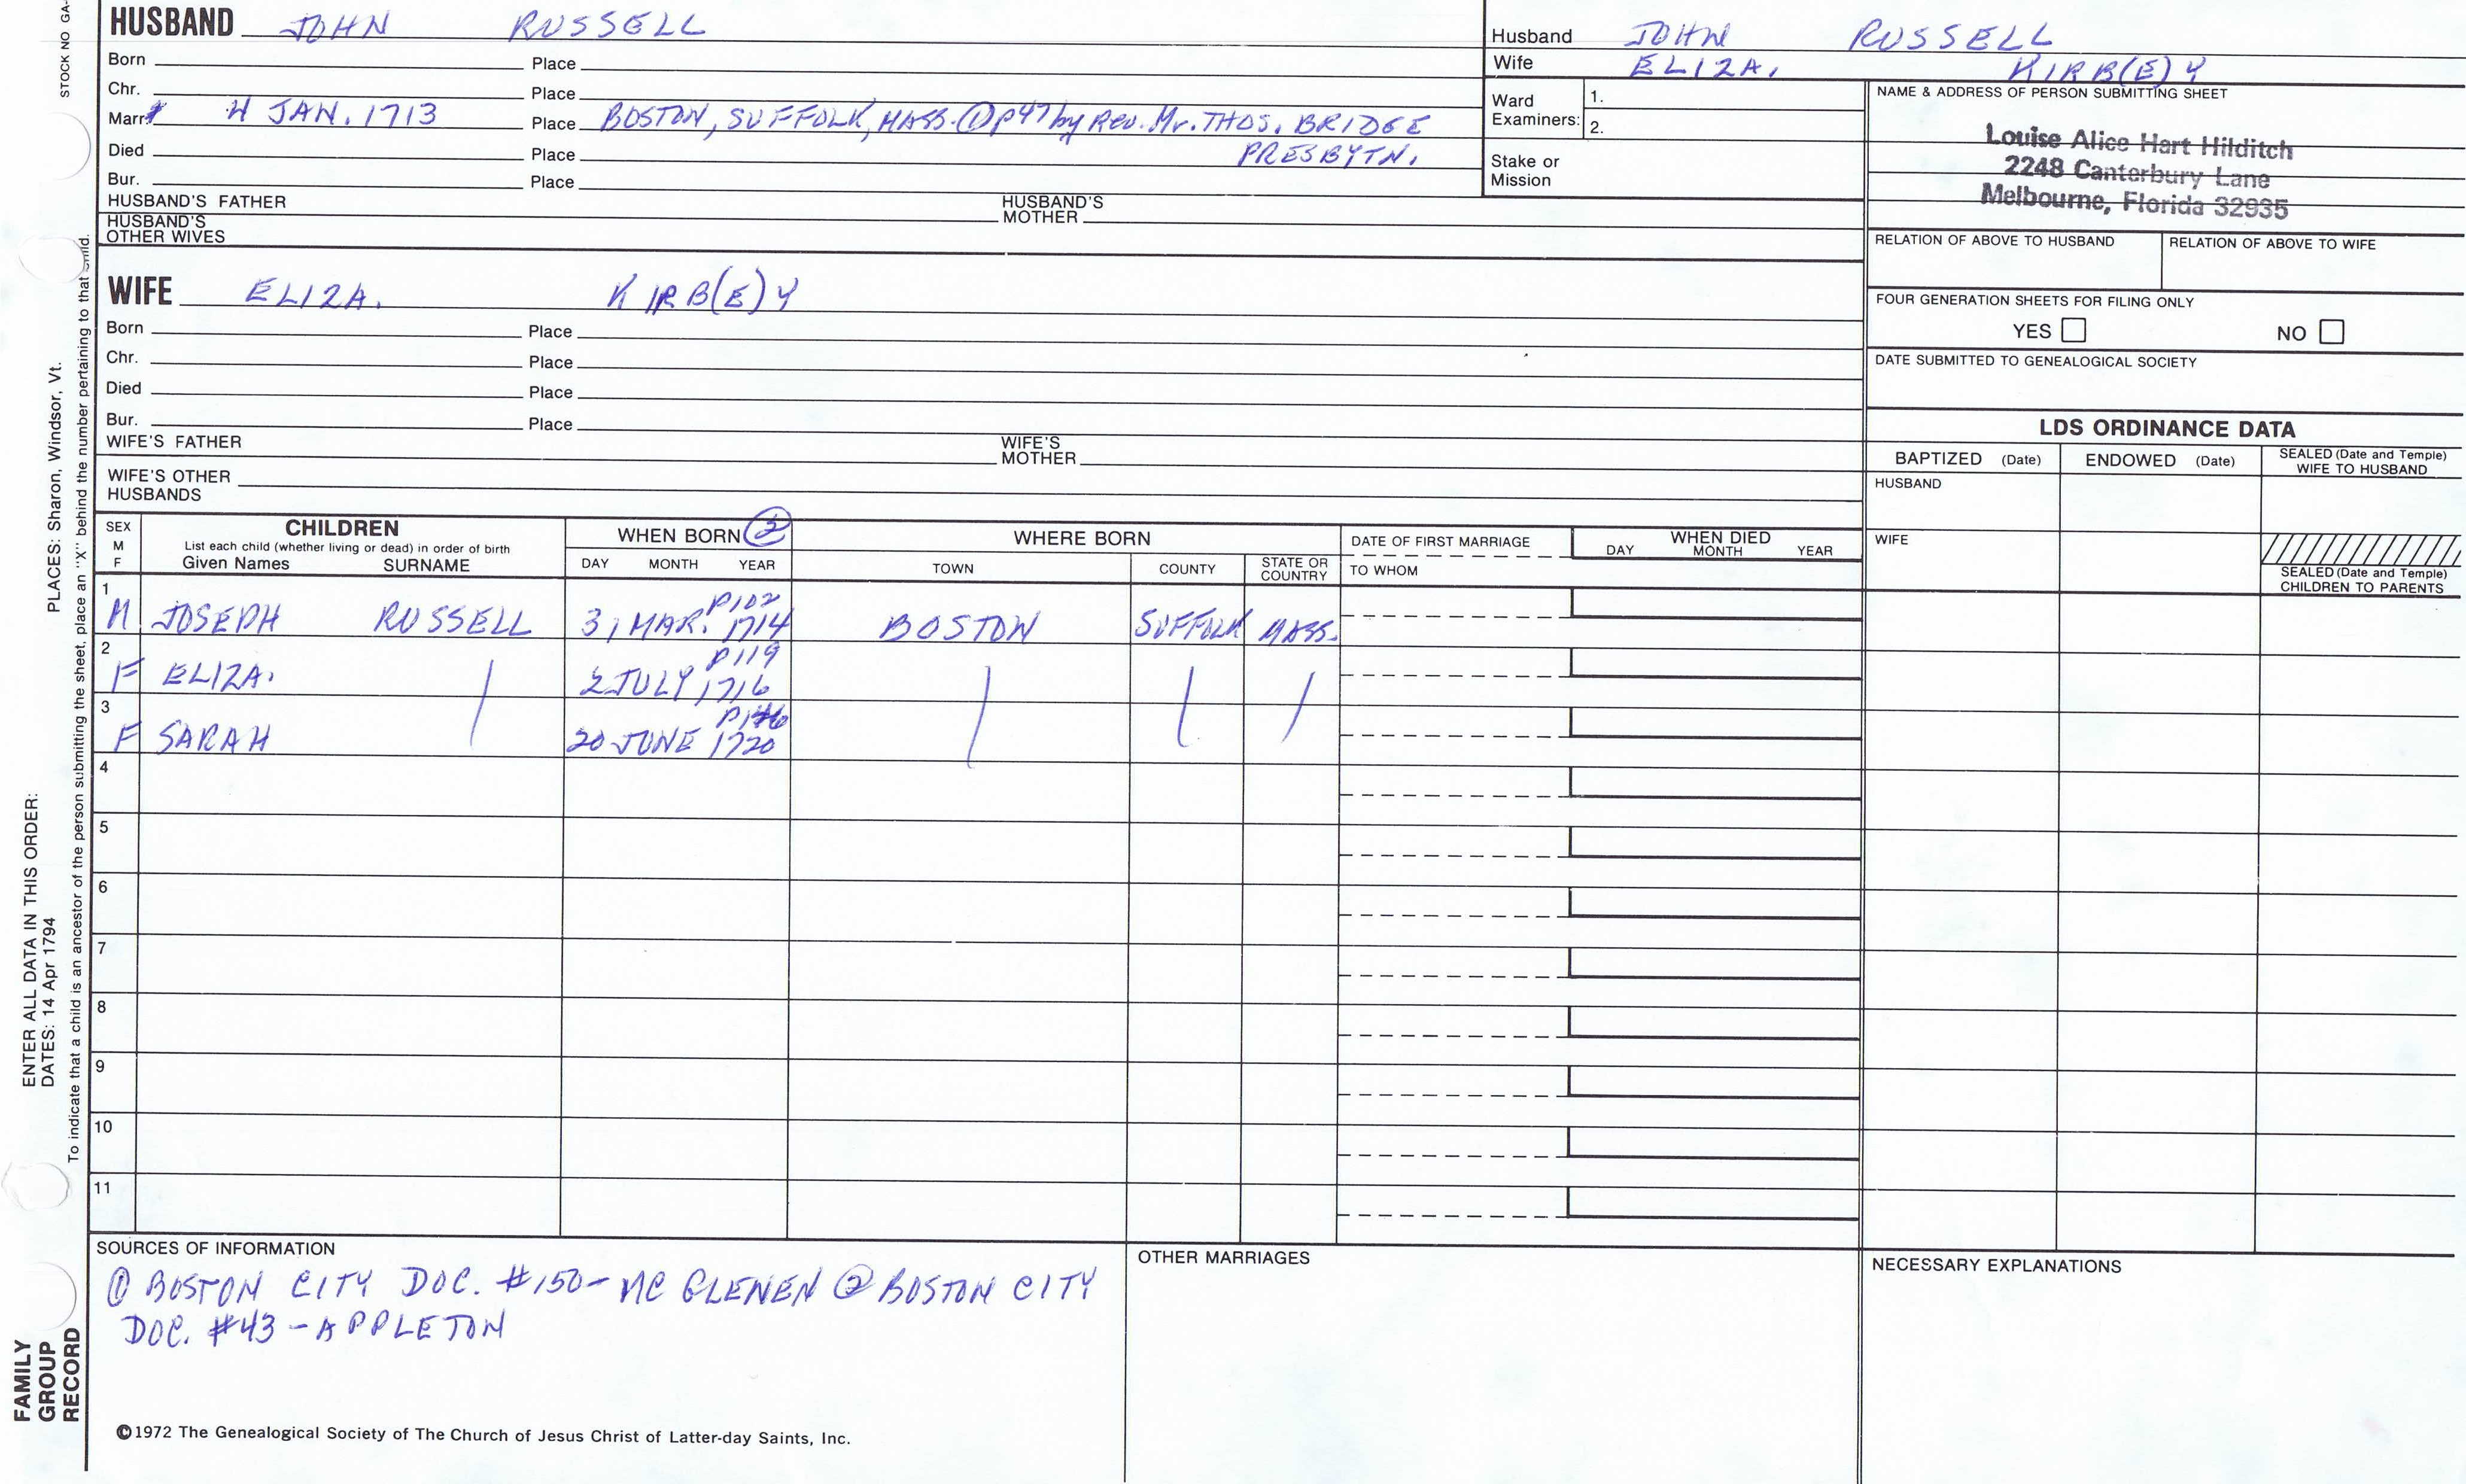 STOCK NO GA-
HUSBAND JOHN RUSSELL
Born Place
Chr. Place
Marr. 4 JAN. 1713 Place BOSTON, SUFFOLK, MASS. ① p47 by Rev. Mr. THOS. BRIDGE
PRESBYTN.
Died Place
Bur. Place
HUSBAND'S FATHER HUSBAND'S MOTHER
HUSBAND'S OTHER WIVES
Husband JOHN RUSSELL
Wife ELIZA. KIRB(E)Y
Ward Examiners: 1.
2.
Stake or Mission
NAME & ADDRESS OF PERSON SUBMITTING SHEET
Louise Alice Hart Hilditch
2248 Canterbury Lane
Melbourne, Florida 32935
RELATION OF ABOVE TO HUSBAND RELATION OF ABOVE TO WIFE
FOUR GENERATION SHEETS FOR FILING ONLY
YES NO
DATE SUBMITTED TO GENEALOGICAL SOCIETY
WIFE ELIZA. KIRB(E)Y
Born Place
Chr. Place
Died Place
Bur. Place
WIFE'S FATHER WIFE'S MOTHER
WIFE'S OTHER HUSBANDS
LDS ORDINANCE DATA
BAPTIZED (Date) ENDOWED (Date) SEALED (Date and Temple) WIFE TO HUSBAND
HUSBAND
WIFE
SEALED (Date and Temple) CHILDREN TO PARENTS
SEX M F
CHILDREN
List each child (whether living or dead) in order of birth
Given Names SURNAME
WHEN BORN ②
DAY MONTH YEAR
WHERE BORN
TOWN COUNTY STATE OR COUNTRY
DATE OF FIRST MARRIAGE
TO WHOM
WHEN DIED
DAY MONTH YEAR
1 M JOSEPH RUSSELL 31 MAR. P102 1714 BOSTON SUFFOLK MASS.
2 F ELIZA. 2 JULY P119 1716
3 F SARAH 20 JUNE P146 1720
4
5
6
7
8
9
10
11
SOURCES OF INFORMATION
① BOSTON CITY DOC. #150- MC GLENEN ② BOSTON CITY
DOC. #43 - APPLETON
OTHER MARRIAGES
NECESSARY EXPLANATIONS
©1972 The Genealogical Society of The Church of Jesus Christ of Latter-day Saints, Inc.
FAMILY
GROUP
RECORD
ENTER ALL DATA IN THIS ORDER:
DATES: 14 Apr 1794 PLACES: Sharon, Windsor, Vt.
To indicate that a child is an ancestor of the person submitting the sheet, place an "X" behind the number pertaining to that child.